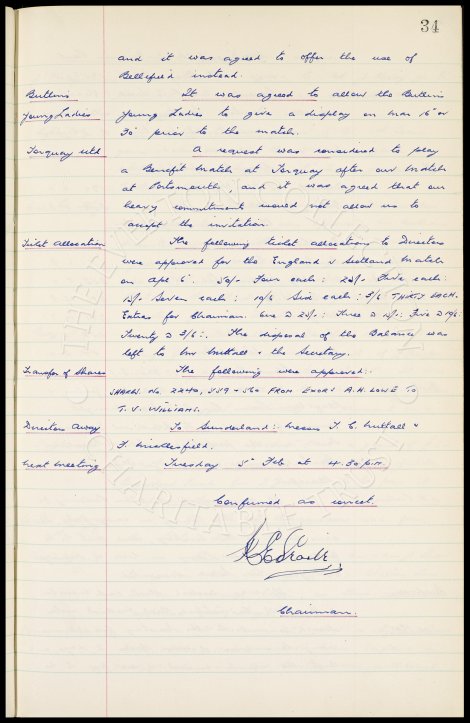 34
and it was agreed to offer the use of
Bellefield instead.
Butlins It was agreed to allow the Butlins
Young Ladies Young Ladies to give a display on Mar 16 or
30 prior to the match.
Torquay Utd A request was considered to play
a Benefit Match at Torquay after our Match
at Portsmouth, and it was agreed that our
heavy commitments would not allow us to
accept the invitation.
Ticket Allocation The following ticket allocations to Directors
were approved for the England v Scotland Match
on Apl 6. 50/- Four each: 25/- Five each:
15/- Seven each: 10/6 Six each: 3/6 THIRTY EACH.
Extras for Chairman. One @ 25/-: Three @ 15/-: Five @ 10/6:
Twenty @ 3/6:. The disposal of the Balance was
left to Mr Nuttall & the Secretary.
Transfer of Shares The following were approved:
SHARES. No. 2240, 559 + 560 FROM EXORS A.H. LOWE TO
T.V. WILLIAMS.
Directors Away To Sunderland: Messrs T. C. Nuttall &
F. Micklesfield.
Next Meeting Tuesday 5 Feb. at 4.30 p.m.
Confirmed as correct.
Chairman.
THE EVERTON COLLECTION
CHARITABLE TRUST